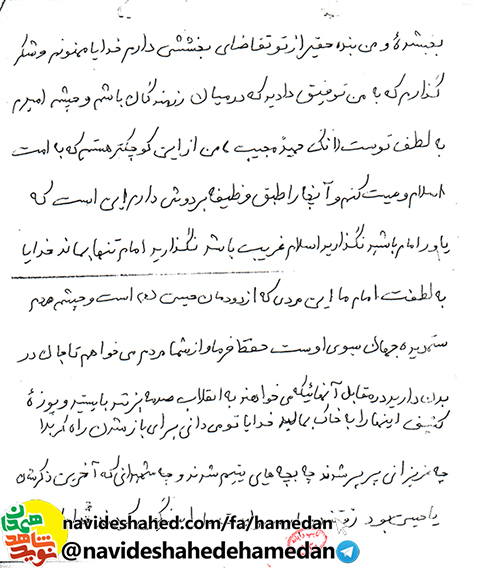 بخشندهٔ و من بنده حقیر از تو تقاضای بخششی دارم خدایا ممنونم و شکر
گذارم که به من توفیق دادید که در میان رزمندگان باشم و چشم امیدم
به لطف توست (انک حمید مجیب) من از این کوچکتر هستم که به امت
اسلام وصیت کنم و آنچه را طبق وظیفه بر دوش دارم این است که
یاور امام باشید نگذارید اسلام غریب باشد نگذارید امام تنها بماند خدایا
به لطفت امام ما این مردی که از دودمان حسین (ع) است و چشم هر
ستمدیده جهان بسوی اوست حفظ فرما و از شما مردم می خواهم تا جان در
بدن دارید در مقابل آنهائیکه می خواهند به انقلاب صدمه بزنند بایستید و پوزهٔ
کثیف اینها را به خاک بمالید خدایا تو می دانی برای باز شدن راه کربلا
چه عزیزانی پرپر شدند چه بچه های یتیم شدند و چه شهیدانی که آخرین ذکرشان
یا حسین بود
navideshahed.com/fa/hamedan
@navideshahedehamedan
نوید شاهد همدان